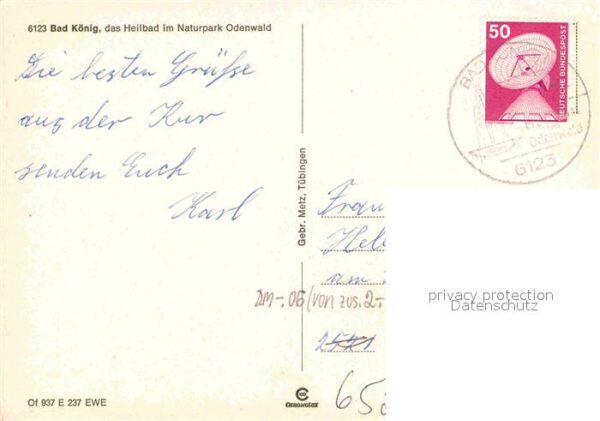 6123 Bad König, das Heilbad im Naturpark Odenwald
Die besten Grüße
aus der Kur
senden Euch
Karl
Gebr. Metz, Tübingen
50
DEUTSCHE BUNDESPOST
BAD
Odenwald
6123
Frau
Hel
am
DM -.06 (von zus. 2.-
privacy protection
Datenschutz
Of 937 E 237 EWE